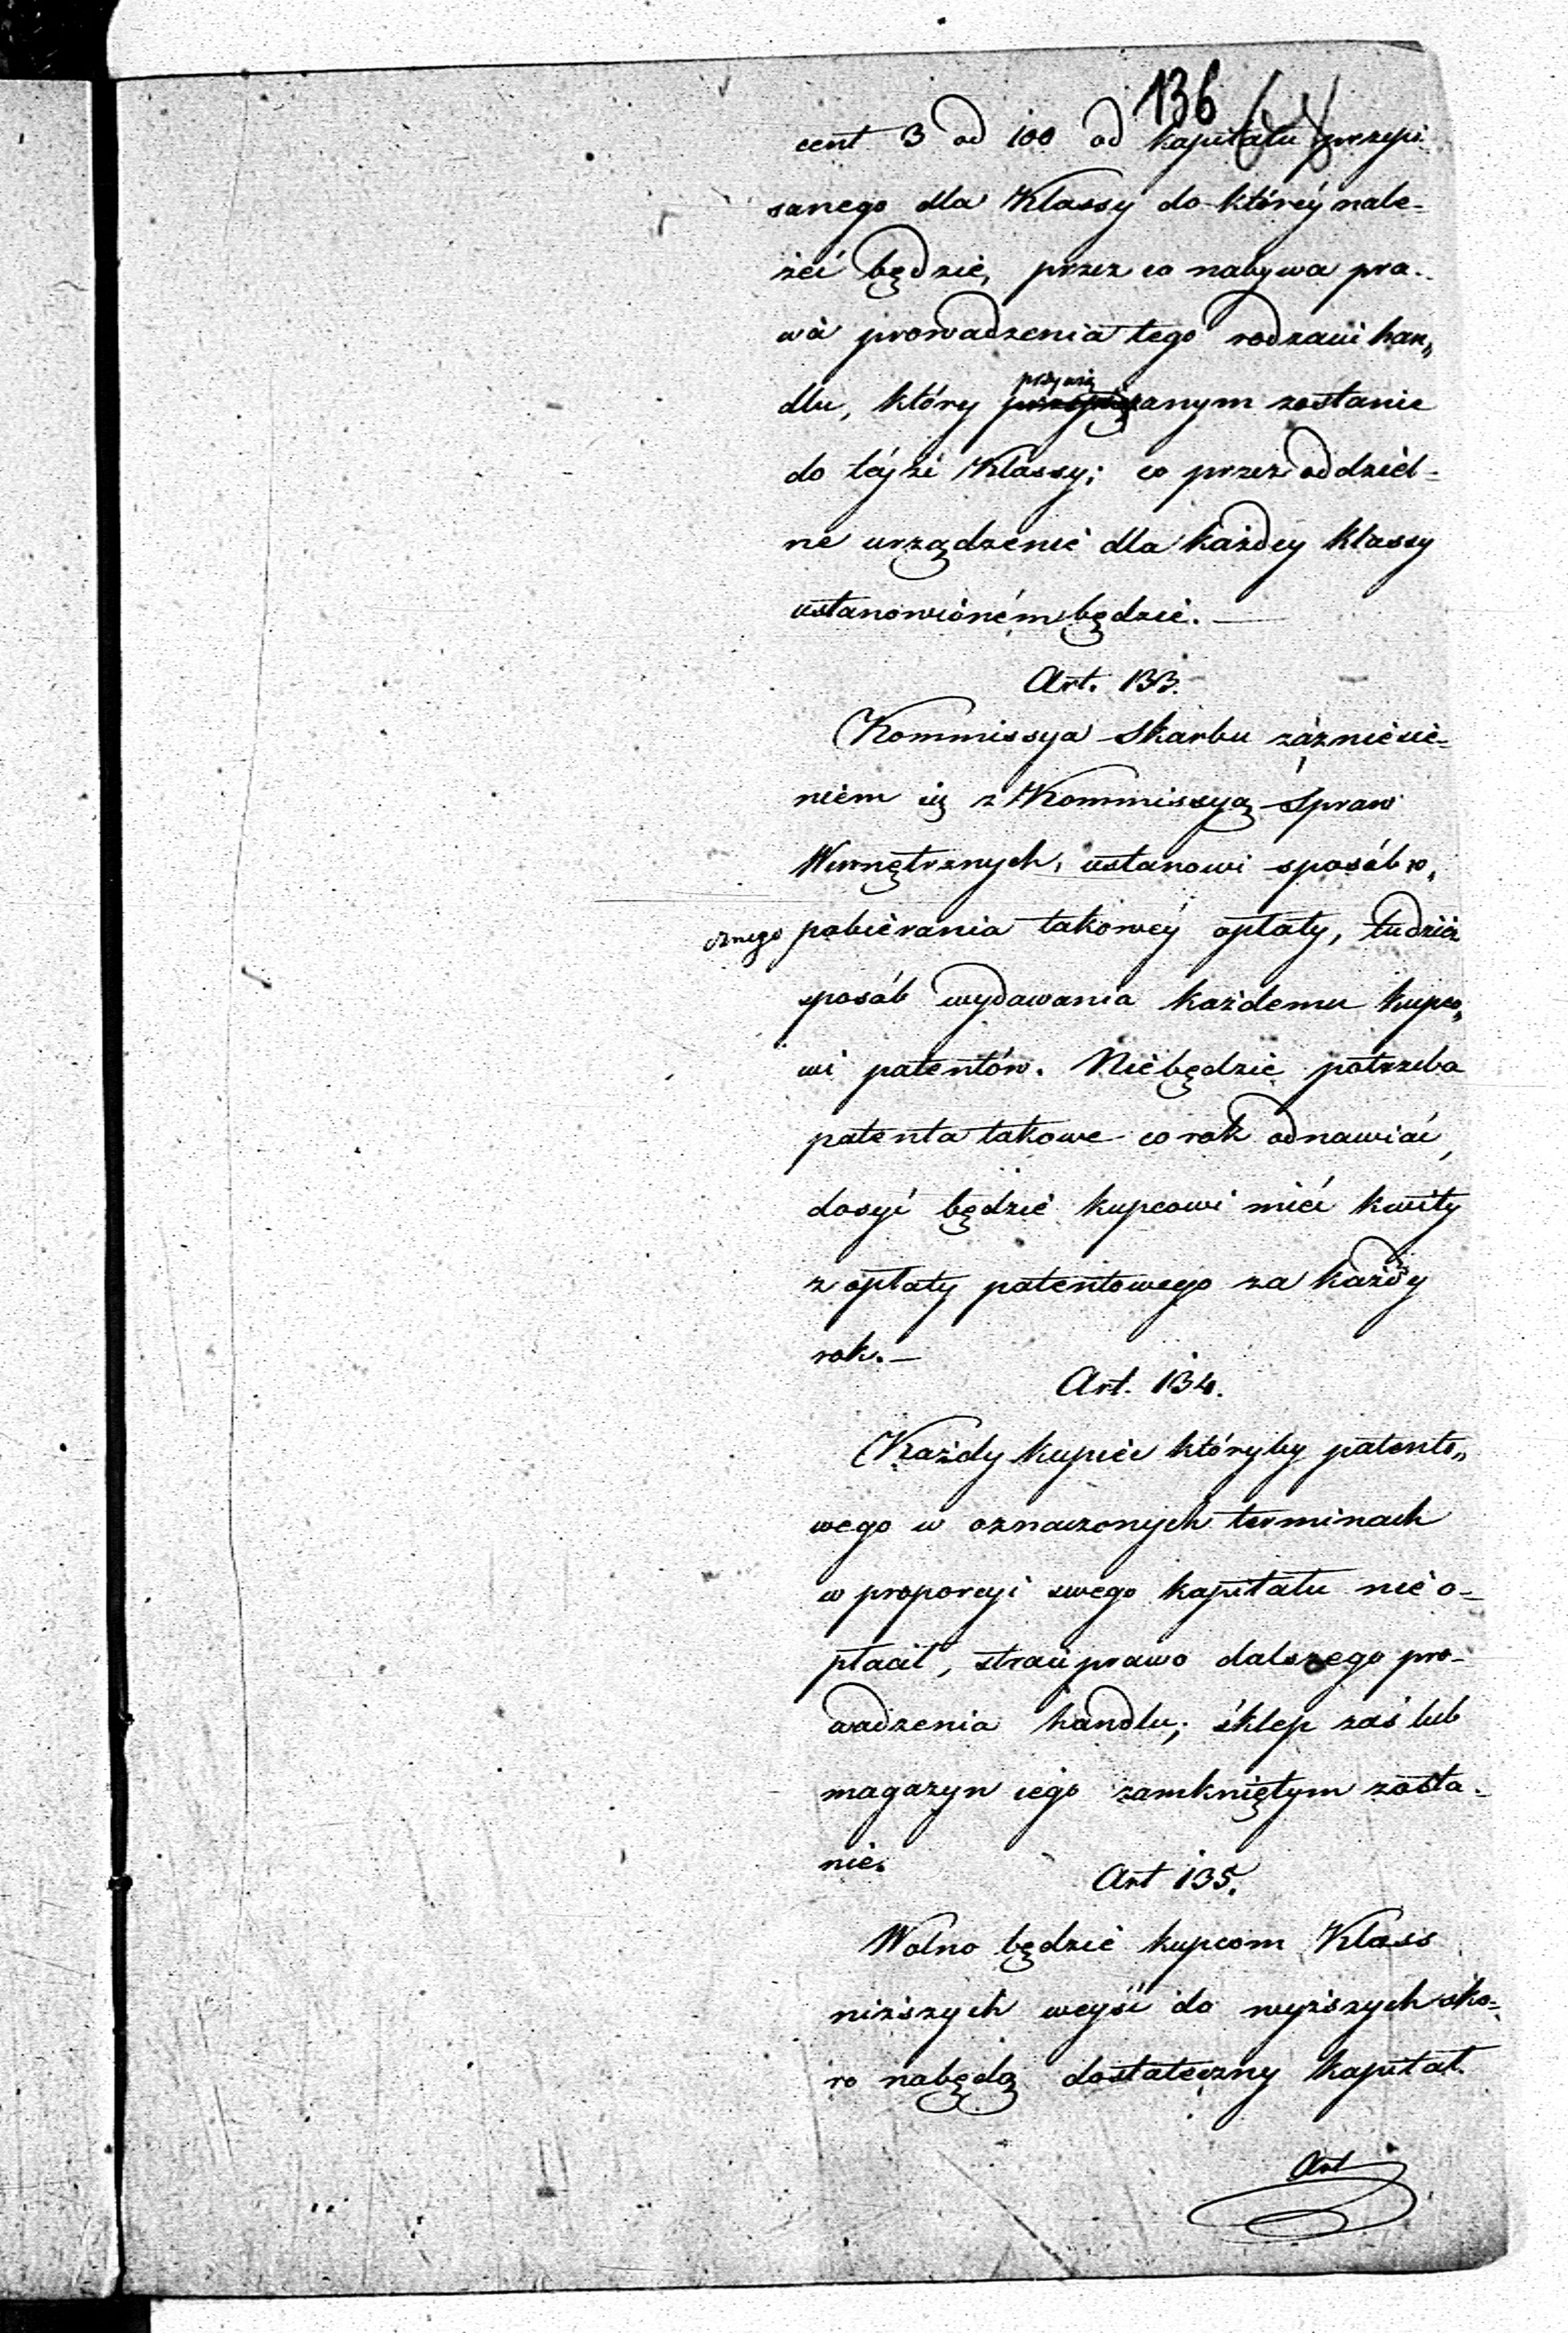 136
cent 3 od 100 od kapitału przepi
sanego dla Klassy do któréy nale-
żéć będzie, przez co nabywa pra-
wa prowadzenia tego rodzaiu han„
dlu, który przywią
przepisanym zostanie
do téyże Klassy; co przez oddziel-
ne urządzenie dla każdey klassy
ustanowioném będzie. —
Art. 133.
Kommissya Skarbu zazniesie-
niem się z Kommissyą Spraw
Wewnętrznych, ustanowi sposób ro„
cznego pobierania takowéy opłaty, tudzież
sposób wydawania każdemu kupco„
wi patentów. Niebędzie potrzeba
patenta takowe co rok odnawiać,
dosyć będzie kupcowi mieć kwity
z opłaty patentowego za każdy
rok. —
Art. 134.
Każdy kupiec któryby patento„
wego w oznaczonych terminach
w proporcyi swego kapitału nie o-
płacił, straci prawo dalszego pro-
wadzenia handlu; sklep zaś lub
magazyn iego zamkniętym zosta-
nie.
Art 135.
Wolno będzie kupcom Klass
niższych weyść do wyższych sko-
ro nabędą dostateczny kapitał.
Art